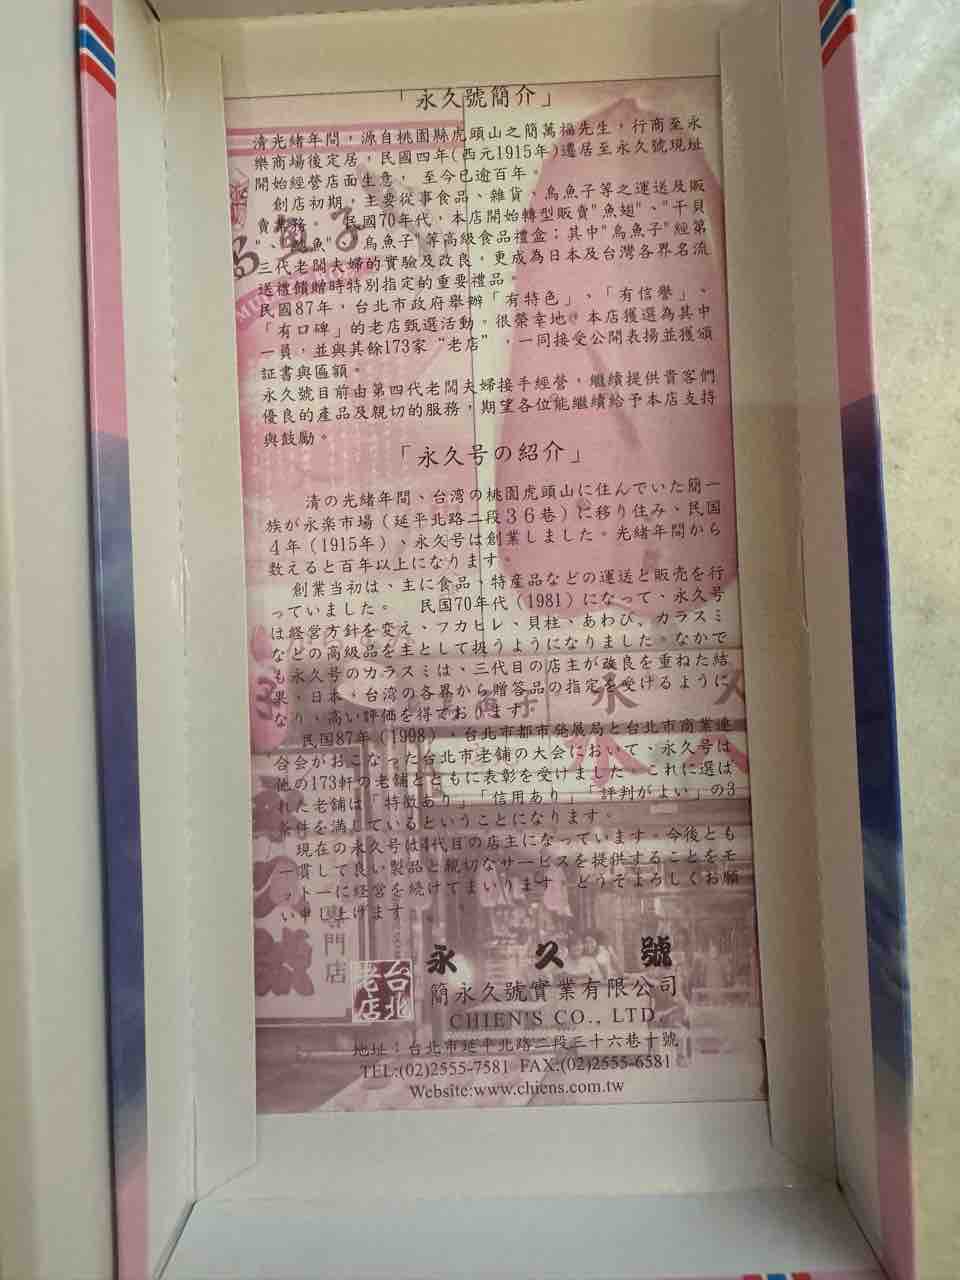 「永久號簡介」
清光緒年間，源自桃園縣虎頭山之簡萬福先生，行商至永
樂商場後定居，民國四年(西元1915年)遷居至永久號現址
開始經營店面生意， 至今已逾百年。
創店初期，主要從事食品、雜貨、烏魚子等之運送及販
賣業務。 民國70年代，本店開始轉型販賣"魚翅"、"干貝
"、"鮑魚"、"烏魚子"等高級食品禮盒；其中"烏魚子"經第
三代老闆夫婦的實驗及改良，更成為日本及台灣各界名流
送禮餽贈時特別指定的重要禮品。
民國87年，台北市政府舉辦「有特色」、「有信譽」、
「有口碑」的老店甄選活動。很榮幸地，本店獲選為其中
一員，並與其餘173家“老店”，一同接受公開表揚並獲頒
証書與匾額。
永久號目前由第四代老闆夫婦接手經營，繼續提供貴客們
優良的產品及親切的服務，期望各位能繼續給予本店支持
與鼓勵。
「永久号の紹介」
清の光緒年間、台湾の桃園虎頭山に住んでいた簡一
族が永楽市場（延平北路二段３６巷）に移り住み、民国
４年（1915年）、永久号は創業しました。光緒年間から
数えると百年以上になります。
創業当初は、主に食品、特産品などの運送と販売を行
っていました。 民国70年代（1981）になって、永久号
は経営方針を変え、フカヒレ、貝柱、あわび、カラスミ
などの高級品を主として扱うようになりました。なかで
も永久号のカラスミは、三代目の店主が改良を重ねた結
果、日本、台湾の各界から贈答品の指定を受けるように
なり、高い評価を得ております。
民国87年（1998）、台北市都市発展局と台北市商業連
合会がおこなった台北市老舗の大会において、永久号は
他の173軒の老舗とともに表彰を受けました。これに選ば
れた老舗は「特徴あり」「信用あり」「評判がよい」の3
条件を満しているということになります。
現在の永久号は4代目の店主になっています。今後とも
一貫して良い製品と親切なサービスを提供することをモ
ットーに経営を続けてまいります。どうぞよろしくお願
い申し上げます
專門店
台北
老店
永久號
簡永久號實業有限公司
CHIEN'S CO., LTD.
地址：台北市延平北路二段三十六巷十號
TEL:(02)2555-7581 FAX:(02)2555-6581
Website:www.chiens.com.tw